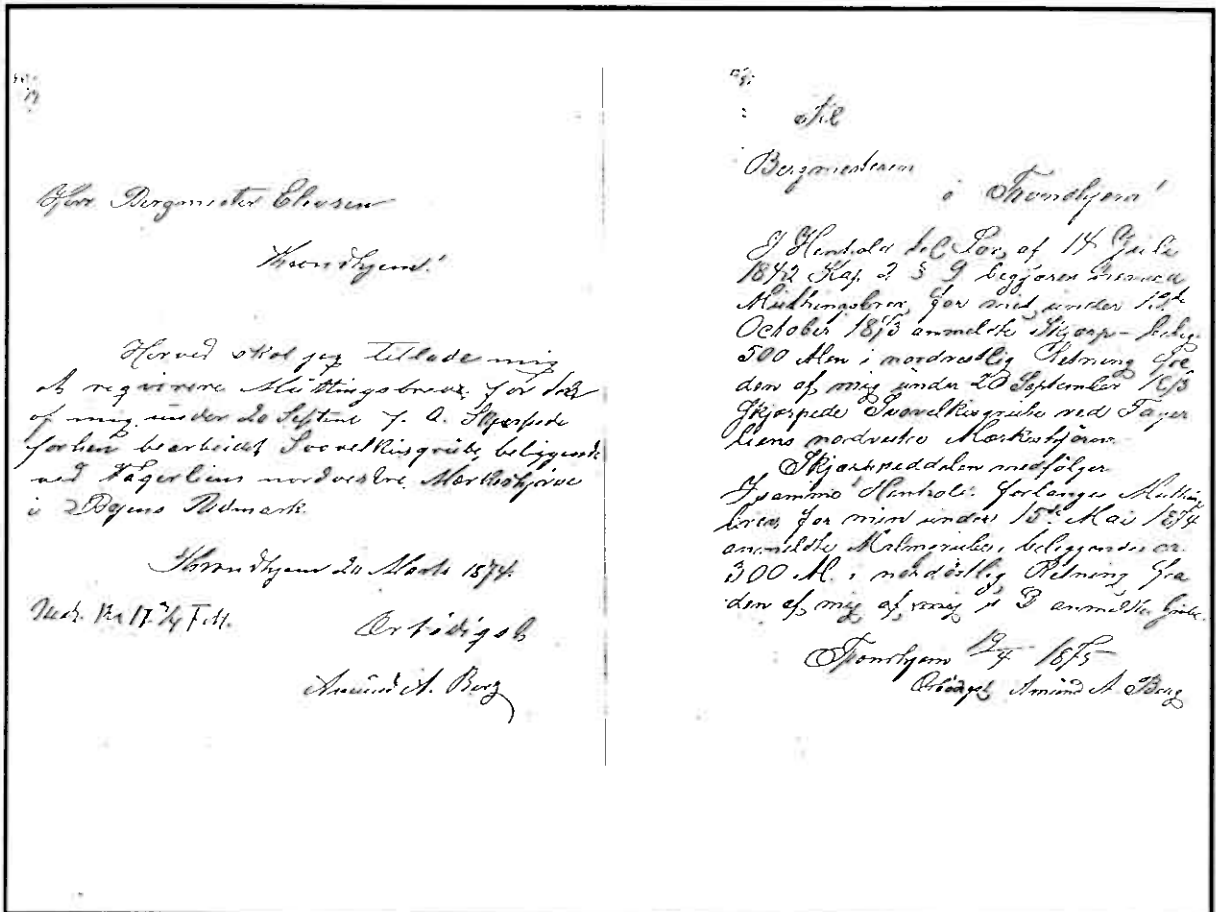 Herr Bergmester Ellefsen
Throndhjem!
Herved skal jeg tillade mig
at reqvirere Muthingsbrev for den
af mig under 20 Septbr f. A. Skjerpede
forhen bearbeidet Svovelkisgrube, beliggende
ved Fagerliens nordvestre Mærkeskjærve
i Udmark.
Throndhjem 20 Marts 1874.
Ærbødigst
Amund A. Berg
Til
Bergmesteren
i Throndhjem!
I Henhold til Lov af 14 Juli
1842 Kap. 2 § 9 begjæres herved
Muthingsbrev for mit under
October 1873 anmeldte Skjærp
500 Alen i nordvestlig Retning fra
den af mig under 20 September 1873
Skjærpede Svovelkisgrube ved Fager
liens nordvestre
Skjærpeseddelen medfølger
I samme Henhold forlanges Muthings
brev for min under 15de Mai 1874
anmeldte Malmgrube, beliggende ca.
300 Al. i nordøstlig Retning fra
den af mig af mig anmeldte Grube.
Trondhjem 19/4 1875
Ærbødigst Amund A Berg